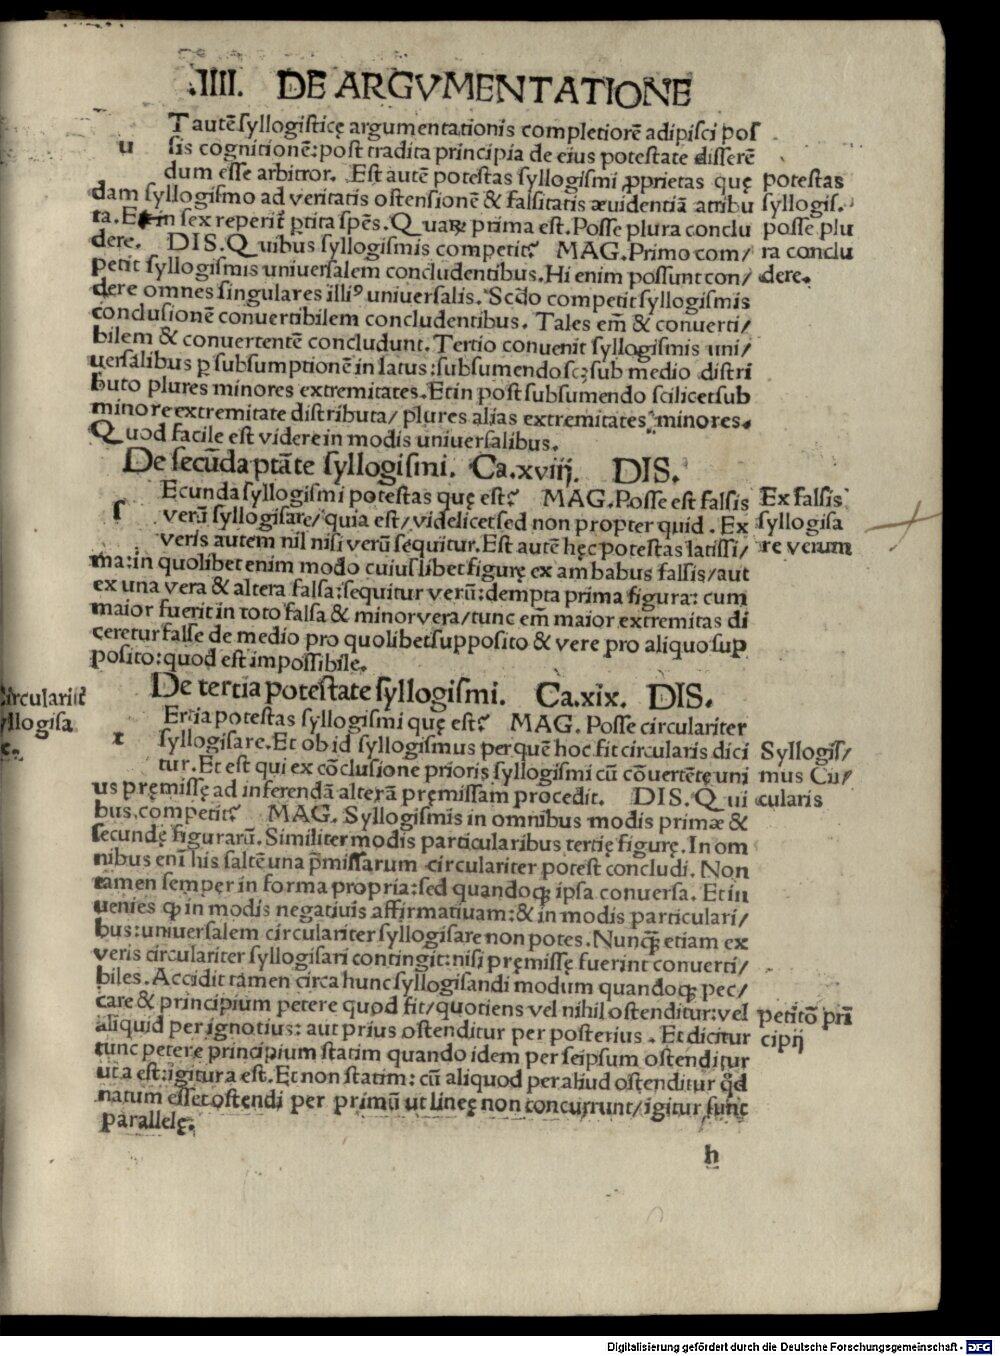 .IIII. DE ARGVMENTATIONE
T autē syllogisticę argumentationis completiorē adipisci pos
u sis cognitionē: post tradita principia de eius potestate disserē
dum esse arbitror. Est autē potestas syllogismi ꝓprietas quę
dam syllogismo ad veritatis ostensionē & falsitatis æuidentiā attribu
ta. Et in sex reperit᷑ ꝑtita spēs. Quaꝝ prima est. Posse plura conclu
dere. DIS. Quibus syllogismis competit? MAG. Primo com/
petit syllogismis universalem concludentibus. Hi enim possunt con/
dere omnes singulares illiꝰ universalis. Scdo competit syllogismis
conclusionē convertibilem concludentibus. Tales em̄ & converti/
bilem & convertentē concludunt. Tertio convenit syllogismis uni/
versalibus ꝑ subsumptionē in latus: subsumendo scꝫ sub medio distri
buto plures minores extremitates. Et in post subsumendo scilicet sub
minore extremitate distributa/ plures alias extremitates minores.
Quod facile est videre in modis universalibus.
potestas
syllogis.
posse plu
ra conclu
dere.
De secūda ptāte syllogismi. Ca.xviij. DIS.
Ecunda syllogismi potestas quę est? MAG. Posse est falsis
s verū syllogisare/ quia est/ videlicet sed non propter quid. Ex
veris autem nil nisi verū sequitur. Est autē hęc potestas latissi/
ma: in quolibet enim modo cuiuslibet figurę ex ambabus falsis/ aut
ex una vera & altera falsa: sequitur verū: dempta prima figura: cum
maior fuerit in toto falsa & minor vera/ tunc em̄ maior extremitas di
ceretur false de medio pro quolibet supposito & vere pro aliquo sup
posito: quod est impossibile.
Ex falsis
syllogisa
re verum
De tertia potestate syllogismi. Ca.xix. DIS.
Ertia potestas syllogismi quę est? MAG. Posse circulariter
t syllogisare. Et ob id syllogismus per quē hoc fit circularis dici
tur. Et est qui ex cōclusione prioris syllogismi cū cōvertētę uni
us pręmissę ad inferendā alterā pręmissam procedit. DIS. Qui
bus competit? MAG. Syllogismis in omnibus modis primæ &
secundę figurarū. Similiter modis particularibus tertię figurę. In om
nibus enī his saltē una p̄missarum circulariter potest concludi. Non
tamen semper in forma propria: sed quandoqꝫ ipsa conversa. Et in
venies ꝙ in modis negativis affirmativam: & in modis particulari/
bus: universalem circulariter syllogisare non potes. Nunqꝫ̄ etiam ex
veris circulariter syllogisari contingit: nisi pręmissę fuerint converti/
biles. Accidit tamen circa hunc syllogisandi modum quandoqꝫ pec/
care & principium petere quod fit/ quotiens vel nihil ostenditur: vel
aliquid per ignotius: aut prius ostenditur per posterius. Et dicitur
tunc petere principium statim quando idem per seipsum ostenditur
ut a est: igitur a est. Et non statim: cū aliquod per aliud ostenditur qd̄
natum esset ostendi per primū ut lineę non concurrunt/ igitur sunt
parallelę.
Syllogis/
mus Cir/
cularis
petitō pri
cipij
circularit᷑
yllogisa
h
Digitalisierung gefördert durch die Deutsche Forschungsgemeinschaft - DFG